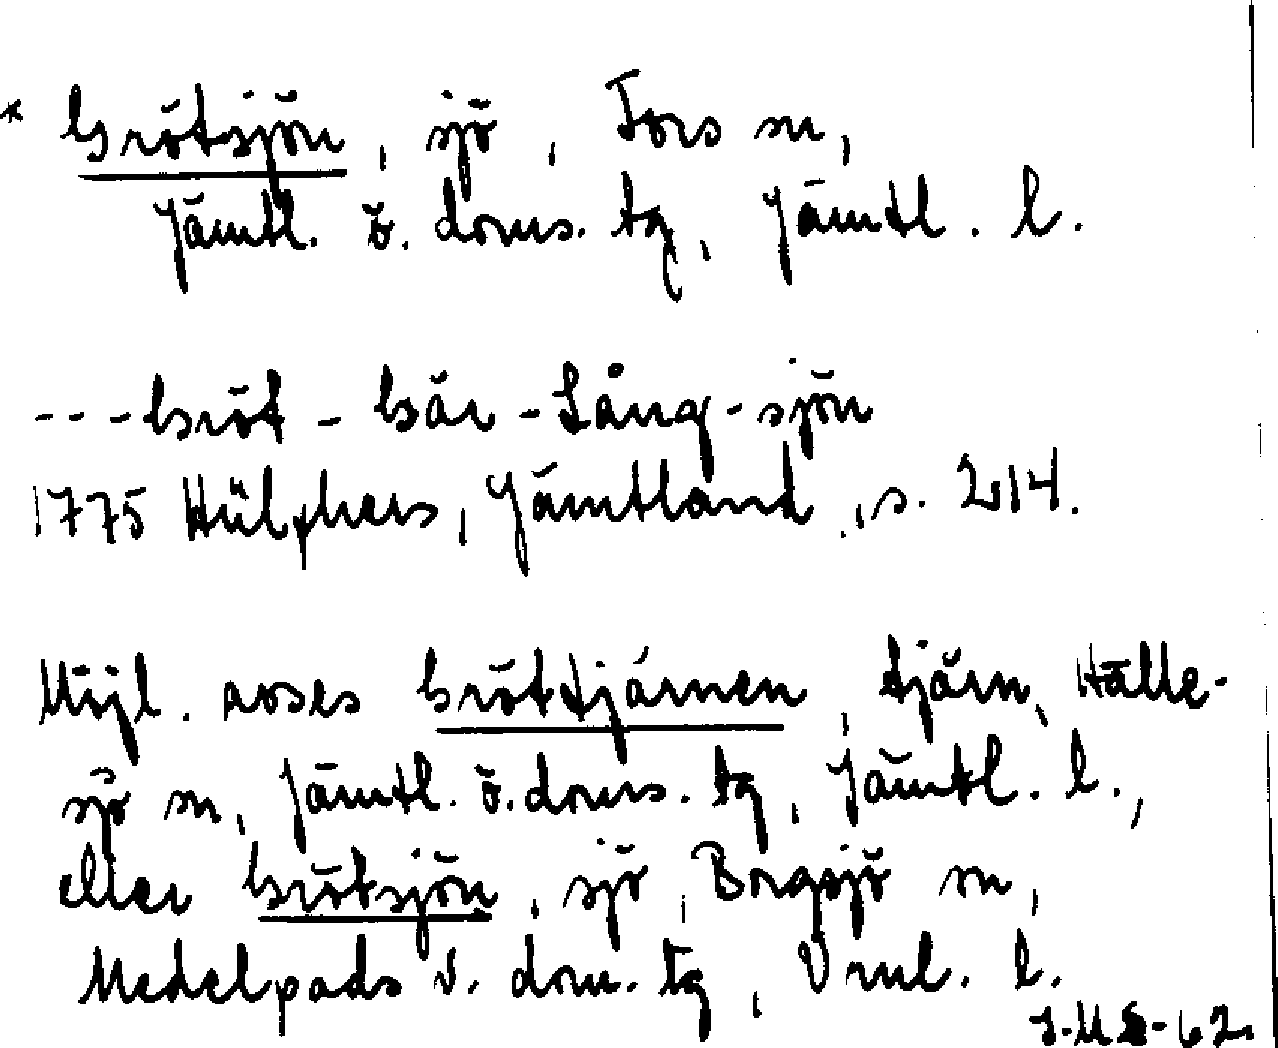 * Grötsjön, sjö, Fors sn,
Jämtl. ö. doms. tg, Jämtl. l.
---Gröt-Gär-Lång-sjön
1775 Hülphers, Jämtland, s. 214.
Möjl. avses Gröttjärnen, tjärn, Hälle-
sjö sn, Jämtl. ö. doms. tg, Jämtl. l.,
eller Grötsjön, sjö, Borgsjö sn,
Medelpads v. dom. tg, Vnl. l.